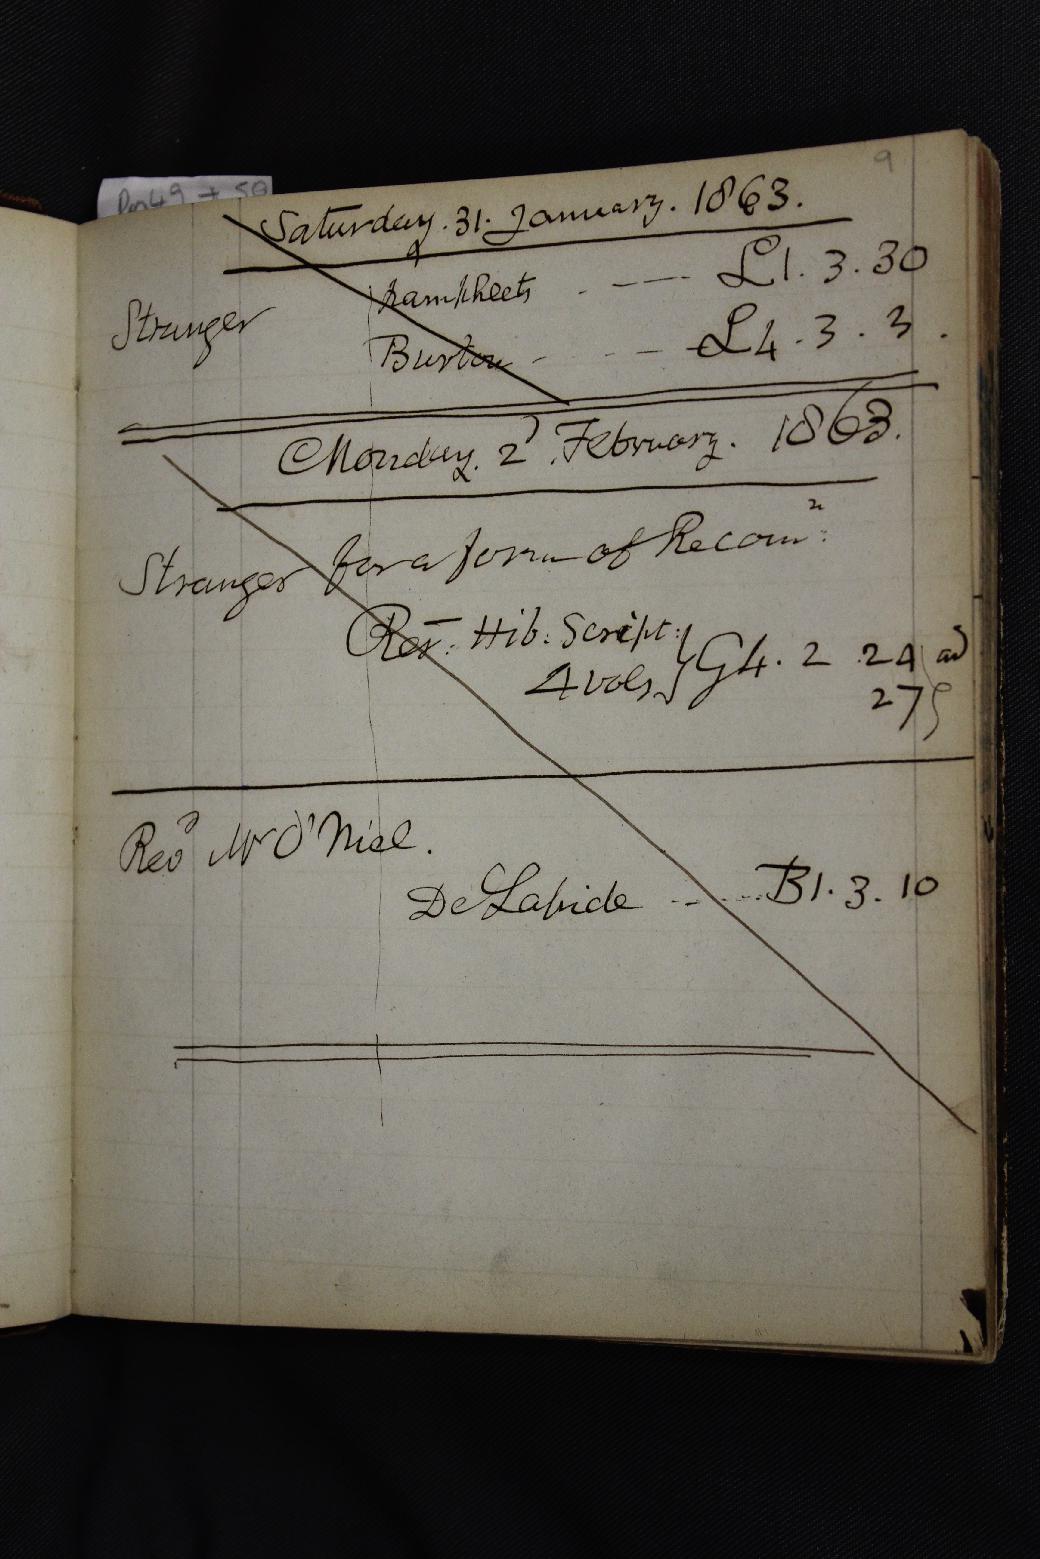 9
Saturday. 31. January. 1863.
Stranger Pamphlets - - - L1. 3. 30
Burton - - - - L4. 3. 3.
Monday. 2d. February. 1863.
Stranger for a form of Recomn:
Rer. Hib. Script: } G4. 2 .24 ad
4 vols } 27
Revd Mr O'Niel.
De Lapide - - - - B1. 3. 10